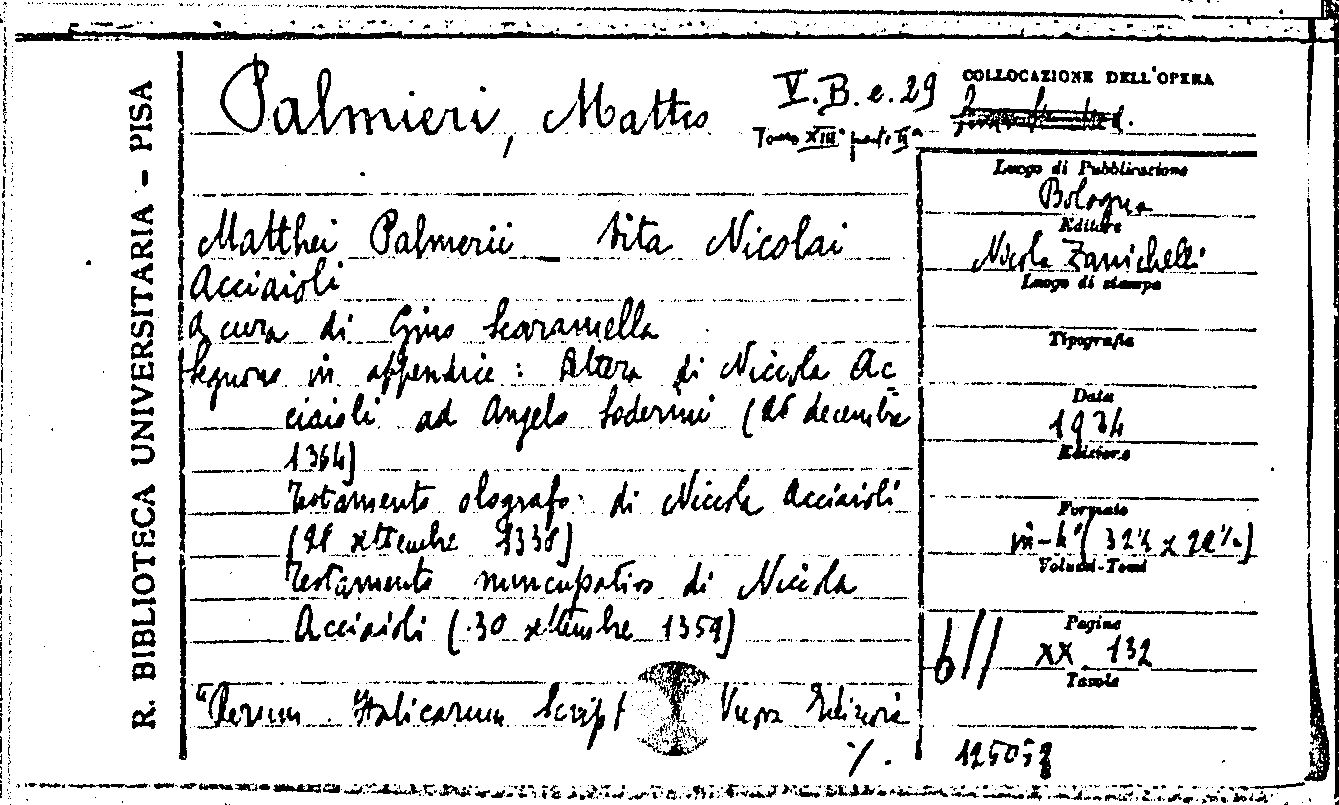 R. BIBLIOTECA UNIVERSITARIA - PISA
Palmieri, Matteo
V.B.e.29
Tomo XIII° parte II°
COLLOCAZIONE DELL'OPERA
Matthei Palmerii _ Vita Nicolai
Acciaioli
a cura di Gino Scaramella
Seguono in appendice: Altera di Niccola Ac
ciaioli ad Angelo Soderini (26 decembre
1364)
Testamento olografo di Niccola Acciaioli
(28 settembre 1338)
Testamento nuncupativo di Niccola
Acciaioli (30 settembre 1359)
"Rerum Italicarum Script Nuova Edizione
%.
Luogo di Pubblicazione
Bologna
Editore
Nicola Zanichelli
Luogo di stampa
Tipografia
Data
1934
Edizione
Formato
in-4°
Volumi-Tomi
Pagine
XX 132
Tavole